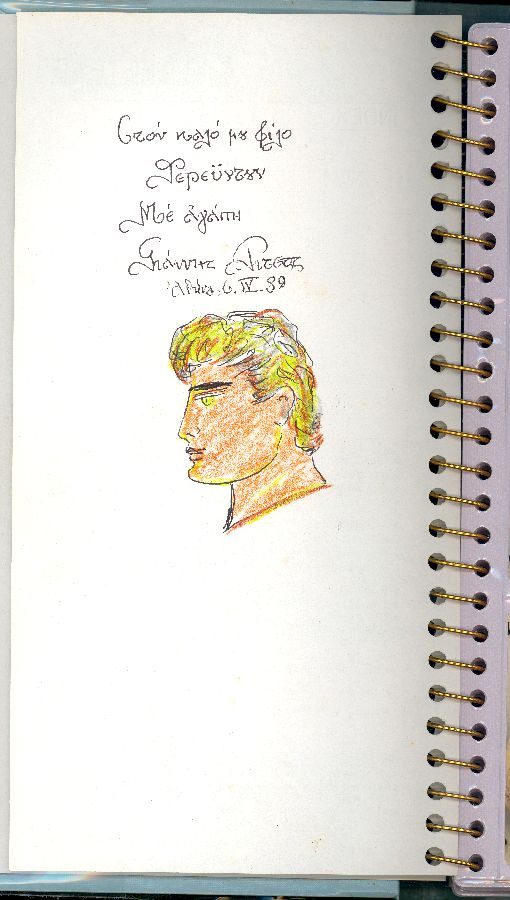 Στόν καλό μου φίλο
Φερεϋντούν
Μέ ἀγάπη
Γιάννης Ρίτσος
Ἀθήνα, 6.IV.89